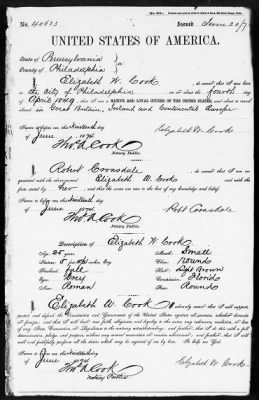 No. 40683 Issued June 20/74
UNITED STATES OF AMERICA.
State of Pennsylvania
County of Philadelphia
I, Elizabeth W. Cook, do swear that I was born
in the City of Philadelphia, on or about the fourth day
of April 1849, that I am a NATIVE AND LOYAL CITIZEN OF THE UNITED STATES, and about to travel
abroad in Great Britain, Ireland and Continental Europe
Sworn to before me this Nineteenth day
of June 1874
Elizabeth W. Cook
Thos. A Cook
Notary Public.
I, Robert Coonsdale, do swear that I am
acquainted with the above-named Elizabeth W. Cook and with the
facts stated by her, and that the same are true to the best of my knowledge and belief.
Sworn to before me this Nineteenth day
of June 1874
Thos. A Cook
Notary Public.
Description of Elizabeth W. Cook
Age, 25 years
Mouth, Small
Stature, 5 feet inches, Eng.
Chin, Round
Forehead, Full
Hair,
Eyes, Grey
Complexion, Florid
Nose, Roman
Face, Round
I, Elizabeth W. Cook, do solemnly swear that I will support,
protect, and defend the Constitution and Government of the United States against all enemies, whether domestic
or foreign; and that I will bear true faith, allegiance, and loyalty to the same, any ordinance, resolution, or law
of any State, Convention, or Legislature to the contrary notwithstanding; and further, that I do this with a full
determination, pledge, and purpose, without any mental reservation or evasion whatsoever; and further, that I will
well and faithfully perform all the duties which may be required of me by law: So help me God.
Sworn to before me this Nineteenth day
of June 1874
Elizabeth W. Cook
Thos. A Cook
Notary Public